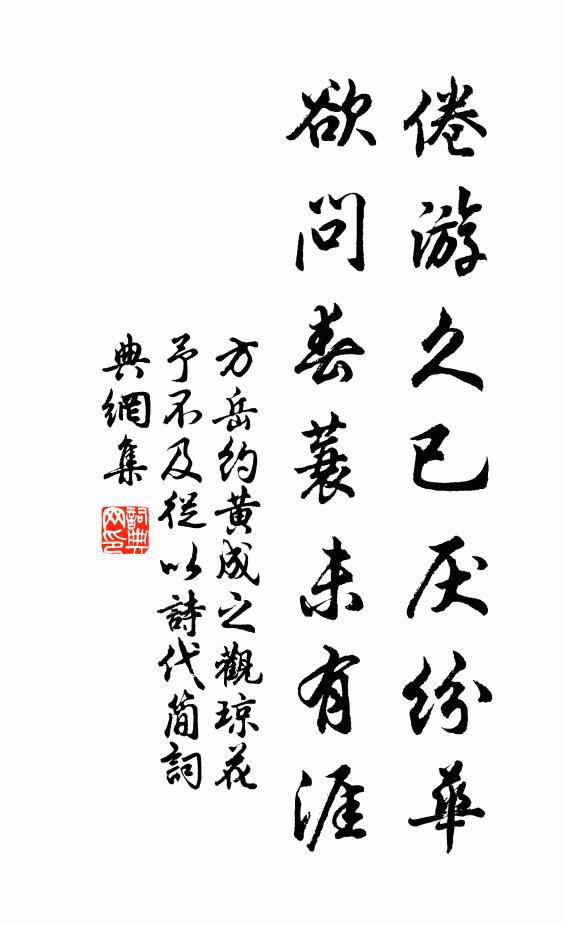 倦游久已厌纷华
欲问春蓑未有涯
方岳约黄成之觀琼花
予不及從以詩代简詞
典網集
詞典网印